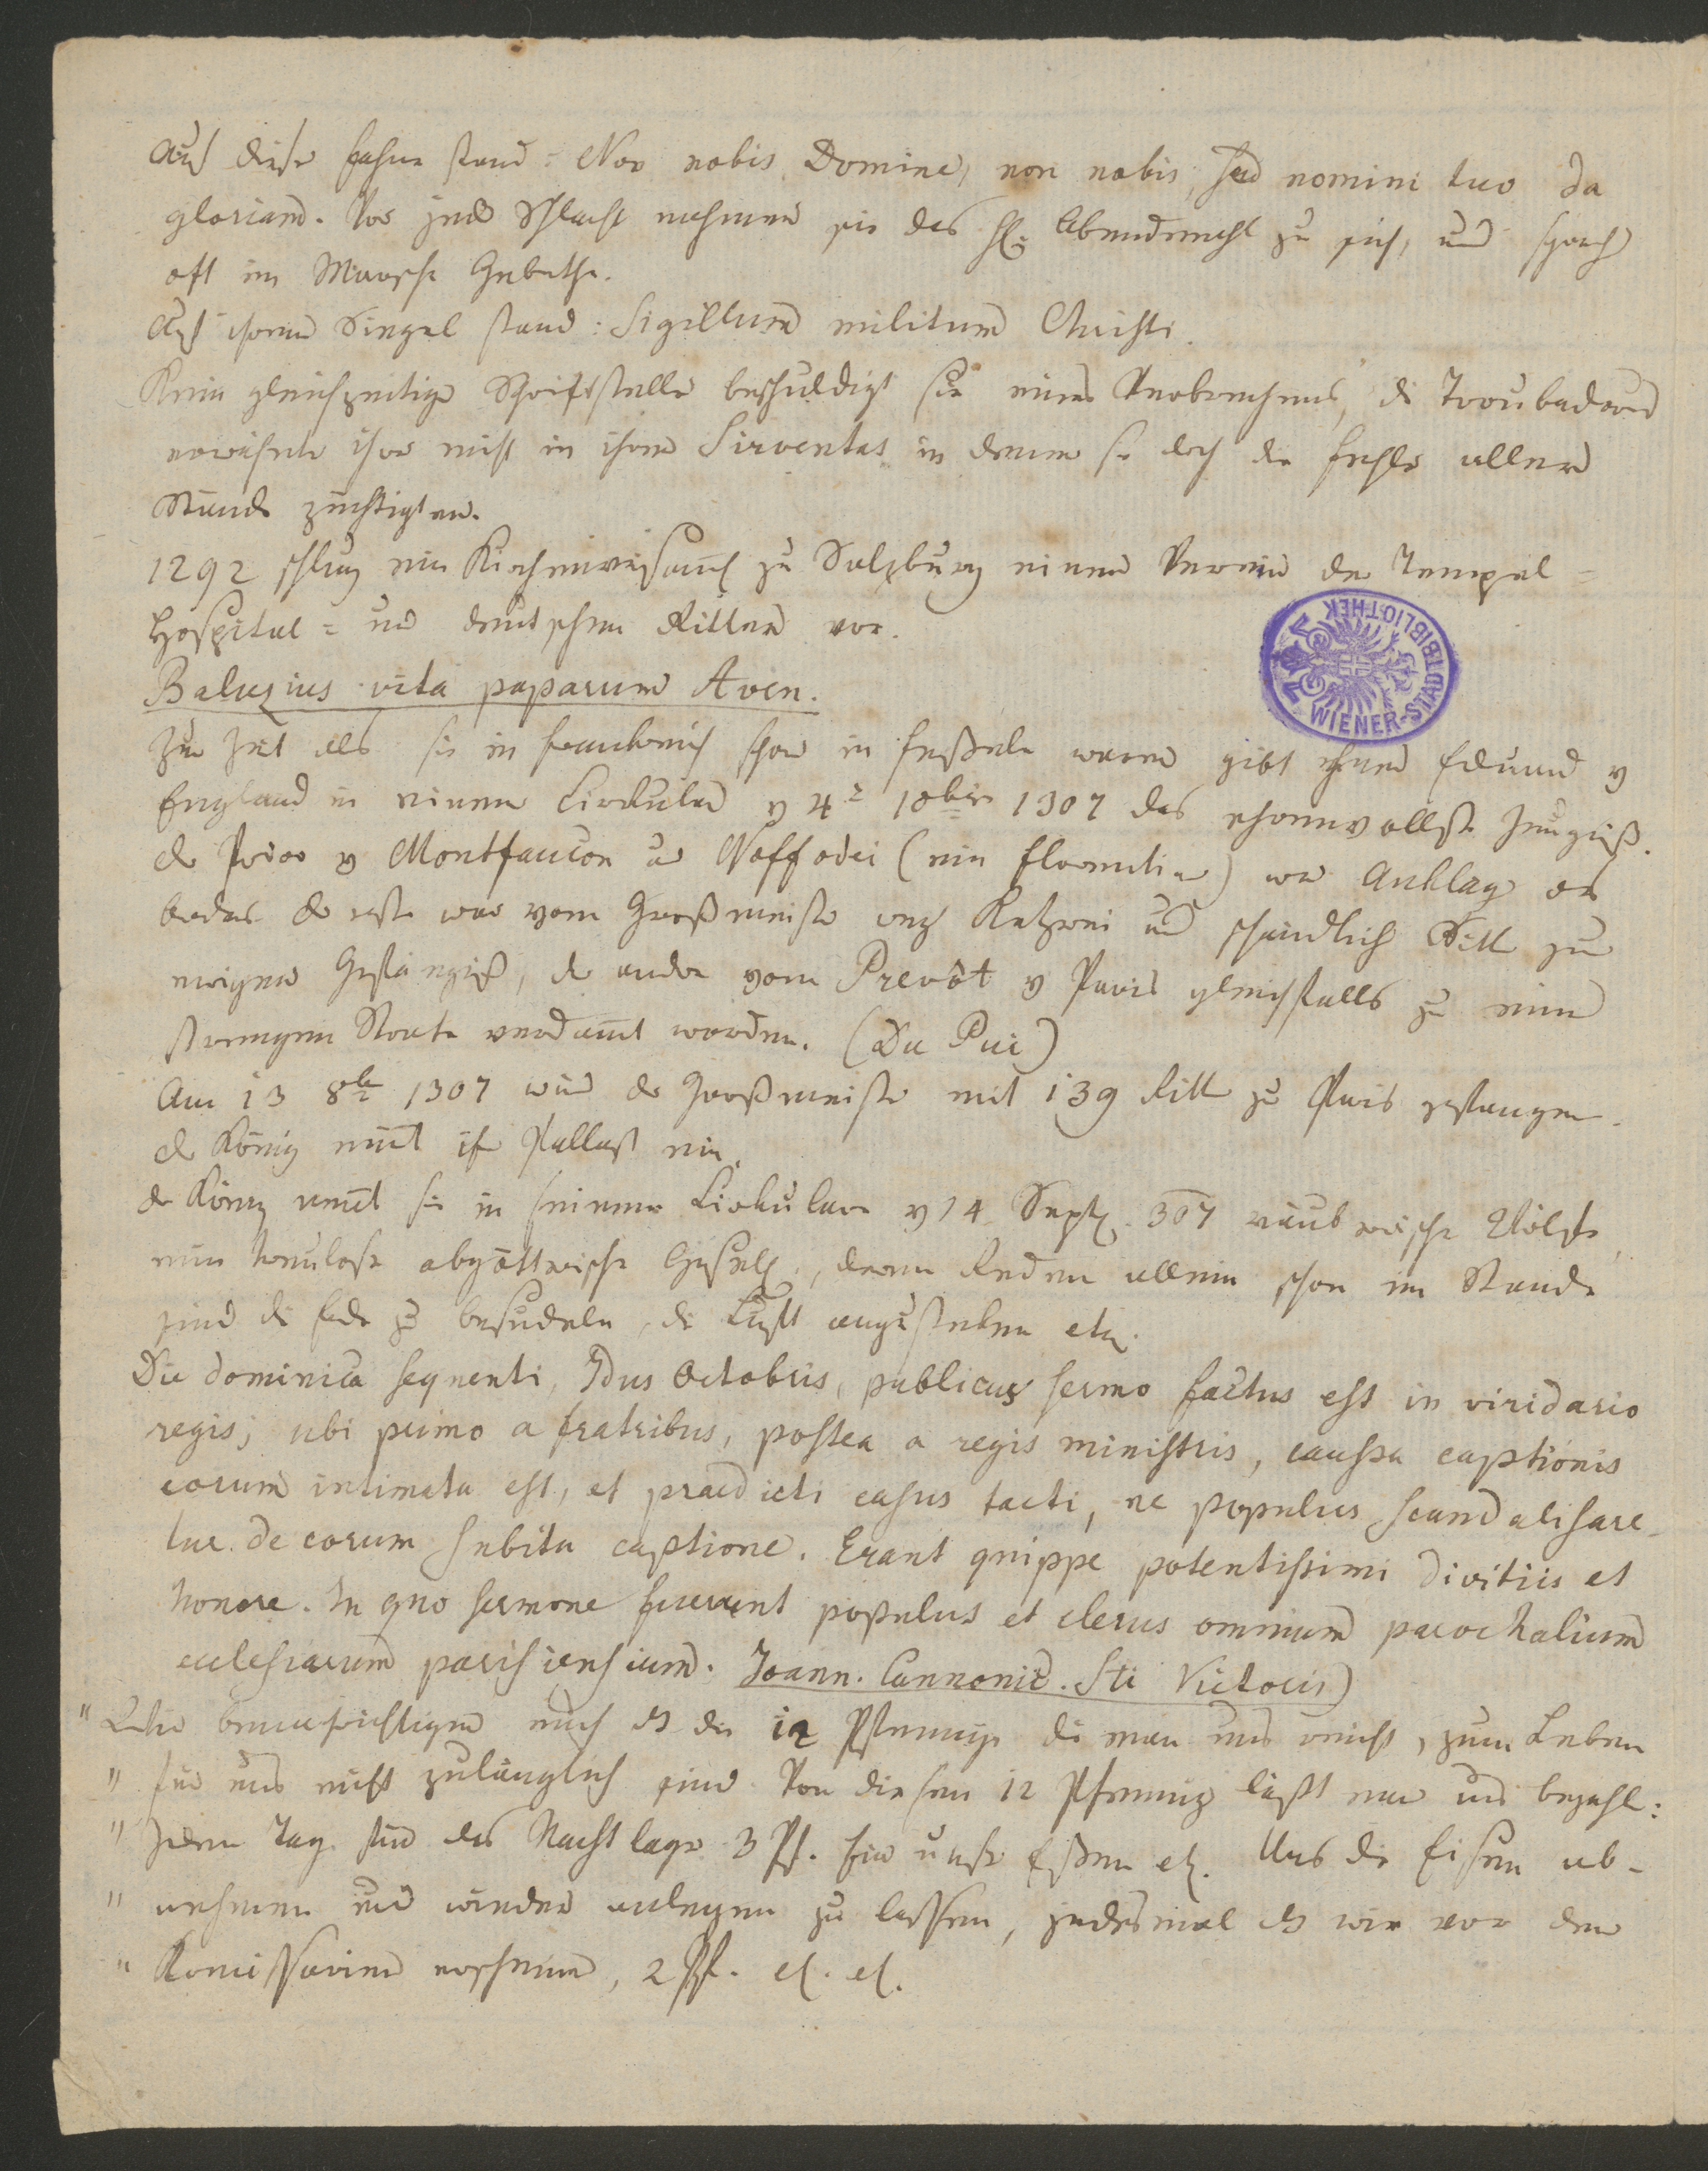 Auf dieser Fahne stand: Non nobis Domine, non nobis, sed nomini tuo da
gloriam. Vor jeder Schlacht nahmen sie das hl: Abendmahl zu sich, und sprach
oft im Marsche Gebethe.
Auf ihrem Siegel stand: Sigillum militum Christi.
Kein gleichzeitiger Schriftsteller beschuldigt sie eines Verbrechens, die Troubadours
erwähnten ihrer nicht in ihren Sirventas in denen sie doch die Fehler aller
Stände züchtigten.
1292 schlug eine Kirchenversamml zu Salzburg einen Verein der Tempel=
Hospital= und deutschen Ritter vor.
Baluzius vita paparum Aven.
Zur Zeit als sie in Frankreich schon in Fesseln waren gibt ihnen Eduard v
England in einem Cirkular v 4t 10ber 1307 das ehrenvollste Zeugniß.
der Prior v Montfaucon u Noffodei (ein Florentiner) war Ankläger
beder der erste war vom Großmeister weg Ketzerei und schändlich Sitt zu
ewigem Gefängniß, der andre vom Prevôt v Paris gleichfalls zu einer
strengen Strafe verdammt worden. (Du Pui)
Am 13 8br 1307 wird der Großmeister mit 139 Ritt zu Paris gefangen.
der König nimt ihr Pallast ein.
der König nennt sie in seinem Cirkulare v 14 Sept. 307 räuberische Wölfe,
eine treulose abgöttrische Gesells., deren Reden allein schon im Stande
sind die Erde zu besudeln, die Luft anzustecken etc.
Die dominica sequenti, Idus Octobris, publicus sermo factus est in viridario
regis; ubi primo a fratribus, postea a regis ministris, caussa captionis
eorum intimata est, et praedicti casus tacti, ne populus scandalisare-
tur de eorum subita captione. Erant quippe potentissimi divitiis et
honore. In quo sermone fuerunt populus et clerus omnium parochalium
ecclesiarum parisiensium. Joann. Cannonic. Sti Victoris)
" benachrichtigen euch daß die 12 Pfennige die man uns reicht, zum Leben
" für uns nicht zulänglich sind. Von diesen 12 Pfennig läßt man uns bezahl:
" Jeden Tag für das Nachtlager 3 Pf. Für unser Essen etc. Uns die Eisen ab-
" nehmen und wieder anlegen zu lassen, jedesmal daß wir vor den
" Komissarien erscheinen, 2 Pf. etc. etc.
WIENER-STADTBIBLIOTHEK